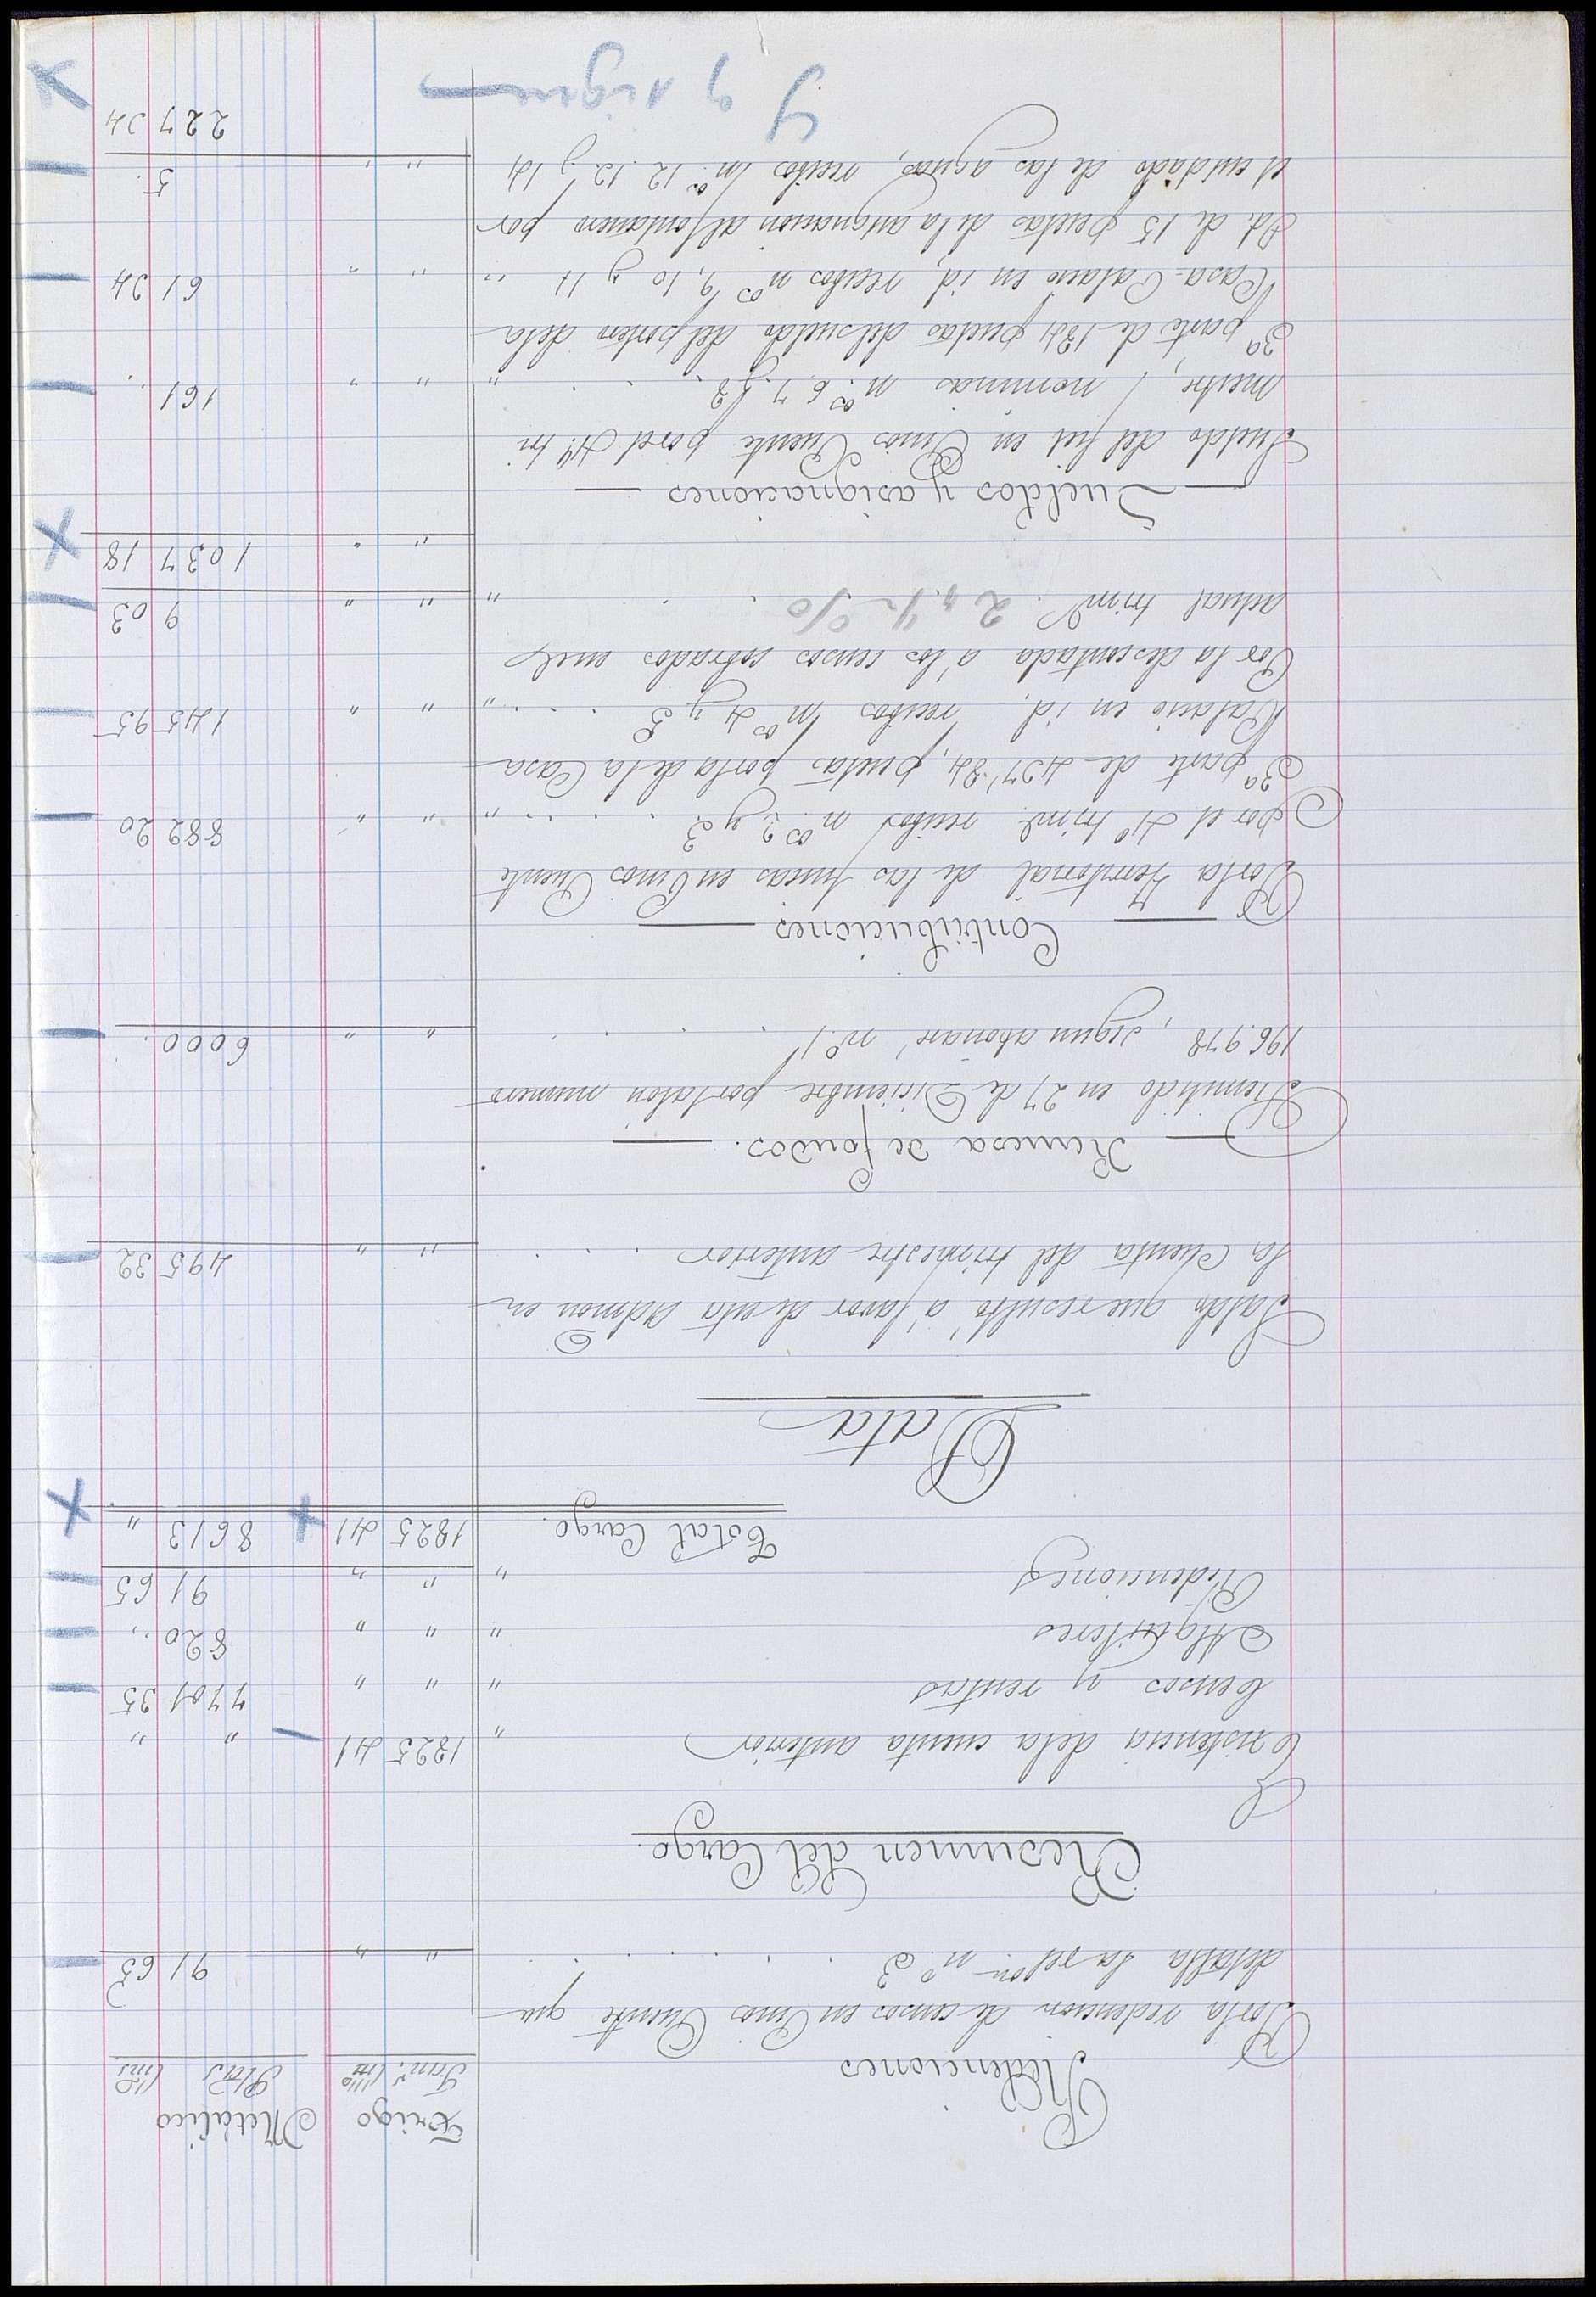 Trigo Metálico
Fan.s C.mos Ptas Cms.
Redenciones
Por la redencion de censos en Pinos Puente que
detalla la relón nº 3 . . . . . " " 91 65
Resumen del Cargo.
Existencia de la cuenta anterior " 1825 41 " "
Censos y rentas " " " 7701 35
Alquileres " " " 820 "
Redenciones " " " 91 65
Total Cargo. 1825 41 8613 "
Data
Saldo que resultó á favor de esta Admon en
la cuenta del trimestre anterior . . . " " 495 32
Remesa de fondos.
Remitido en 27 de Diciembre por talon numero
196.978, segun abonaré nº 1 . . . . " " 6000 .
Contribuciones
Por la Territorial de las fincas en Pinos Puente
por el 4º trim.e recibos n.os 2 y 3 . . . " " " 882 20
3ª parte de 437'84 pesetas por la de la Casa
Palacio en id, recibos n.os 4 y 5 . . . " " " 145 95
Por la descontada á los censos cobrados en el
actual trim.e . 24,72 % . . " " " 9 03
" " 1037 18
Sueldos y asignaciones
Sueldo del fiel en Pinos Puente por el 4º tri
mestre, nominas n.os 6 7 y 8 . . . " " " 161 ..
3ª parte de 184 pesetas del sueldo del portero de la
Casa-Palacio en id, recibos n.os 9, 10 y 11 " " " 61 34
Id. de 15 pesetas de la asignacion al fontanero por
el cuidado de las aguas, recibos n.os 12. 13. y 14 " " 5 .
227 34
y sigue